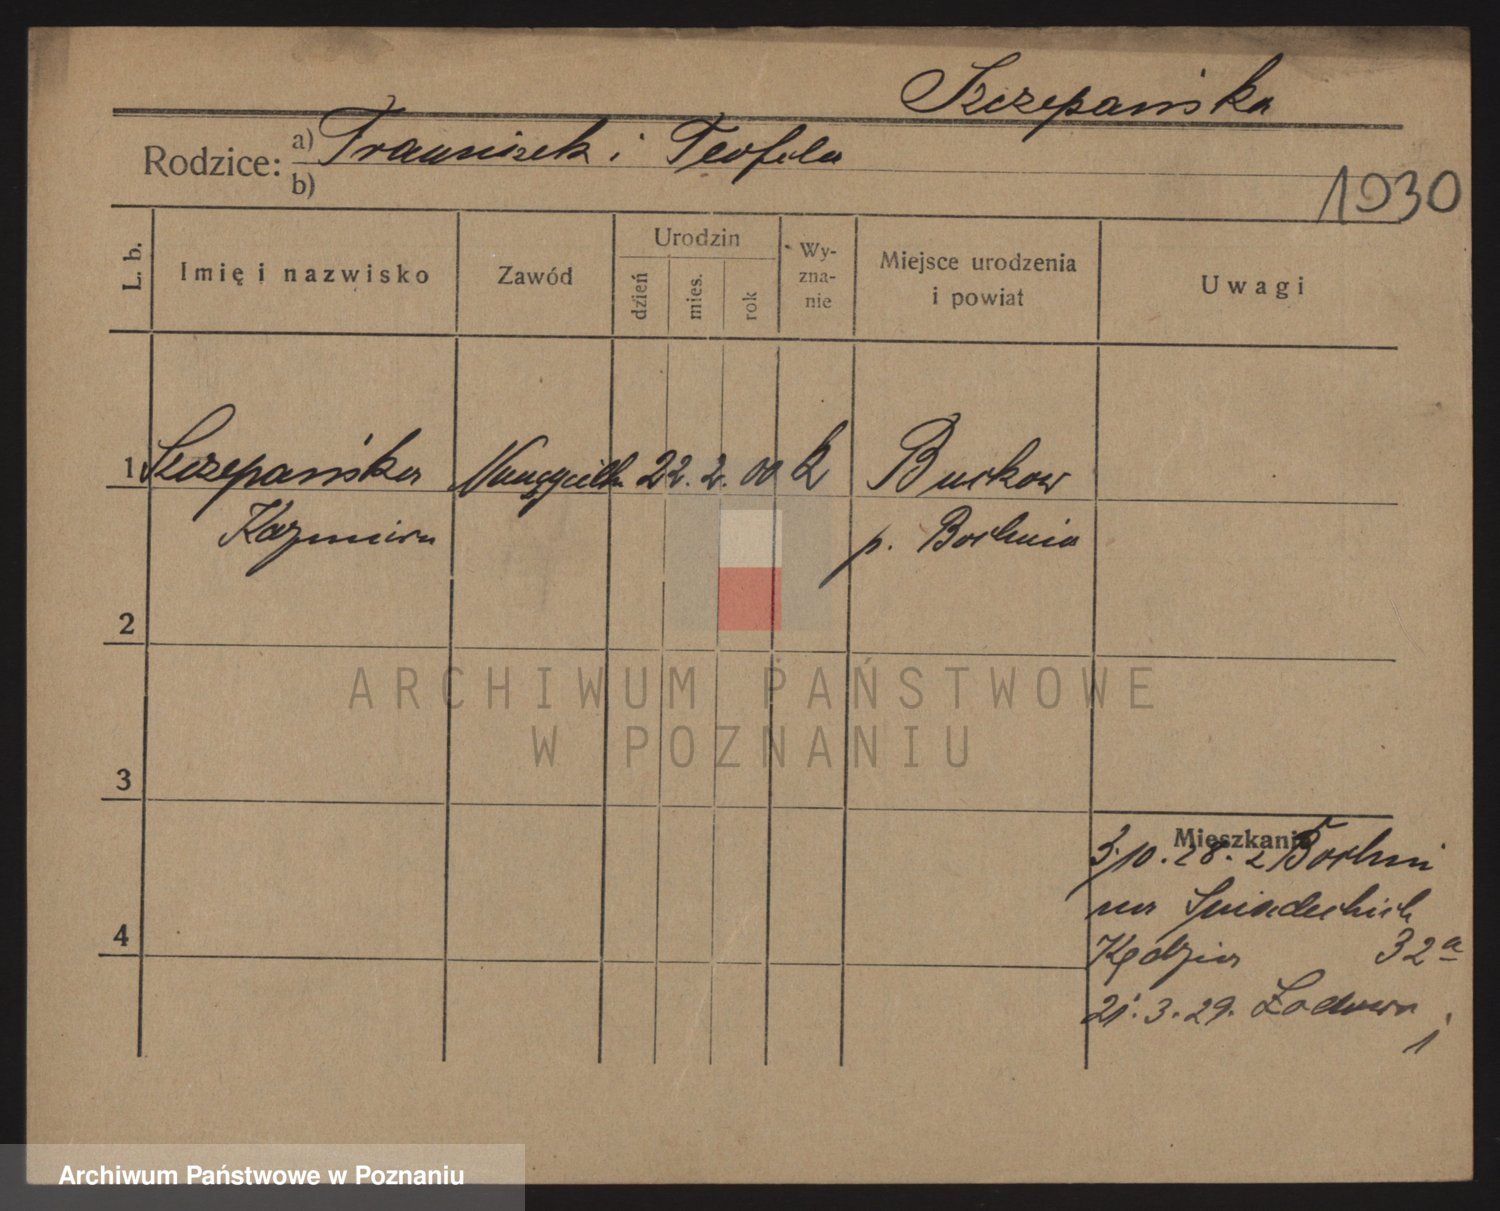 Szczepańska
Rodzice: a) Franciszek i Teofila
b)
1930
L. b. Imię i nazwisko Zawód Urodzin dzień mies. rok Wy-zna-nie Miejsce urodzenia i powiat Uwagi
1 Szczepańska Nauczycielka 22. 2. 00 k Buczkow
Kazimiera p. Bochnia
2
ARCHIWUM PAŃSTWOWE
W POZNANIU
3
Mieszkanie
3. 10. 28. z Bochni
na Śniadeckich
Kędzior 32a
21. 3. 29.
4
1
Archiwum Państwowe w Poznaniu